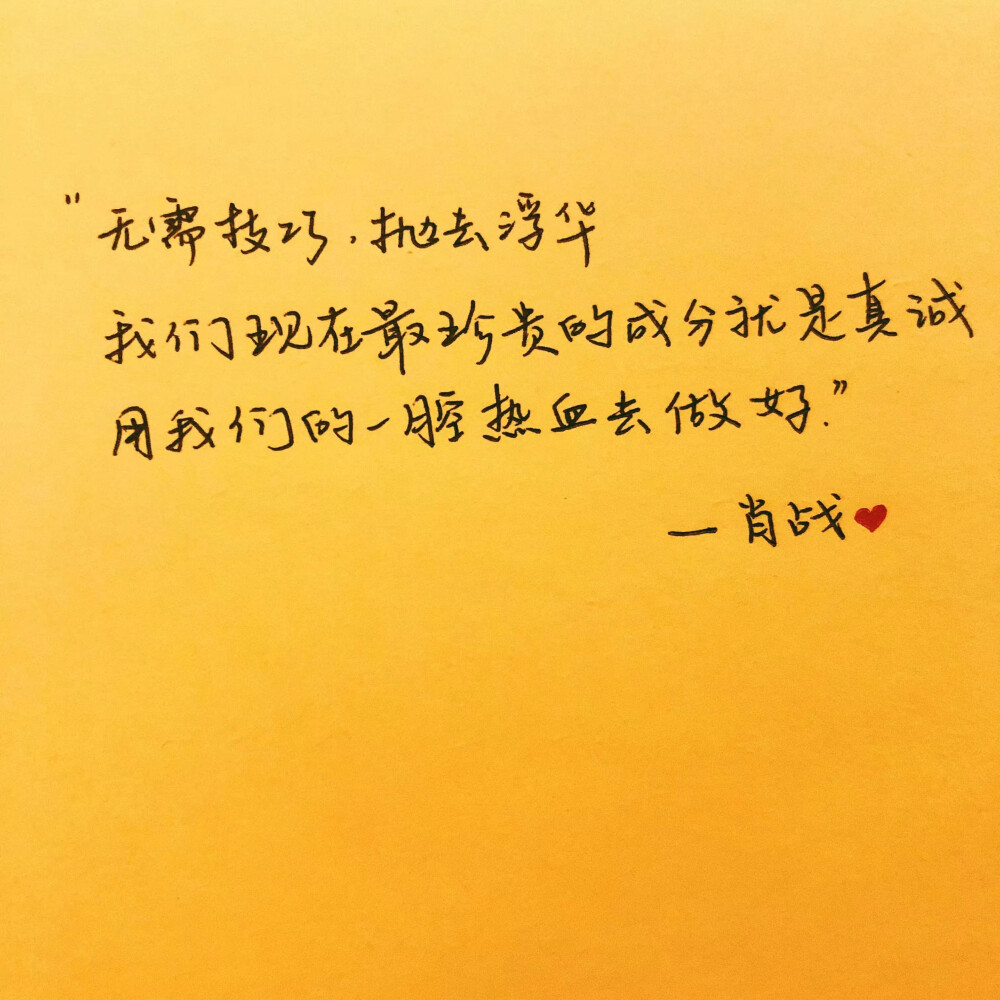 "无需技巧，抛去浮华
我们现在最珍贵的成分就是真诚
用我们的一腔热血去做好."
—肖战